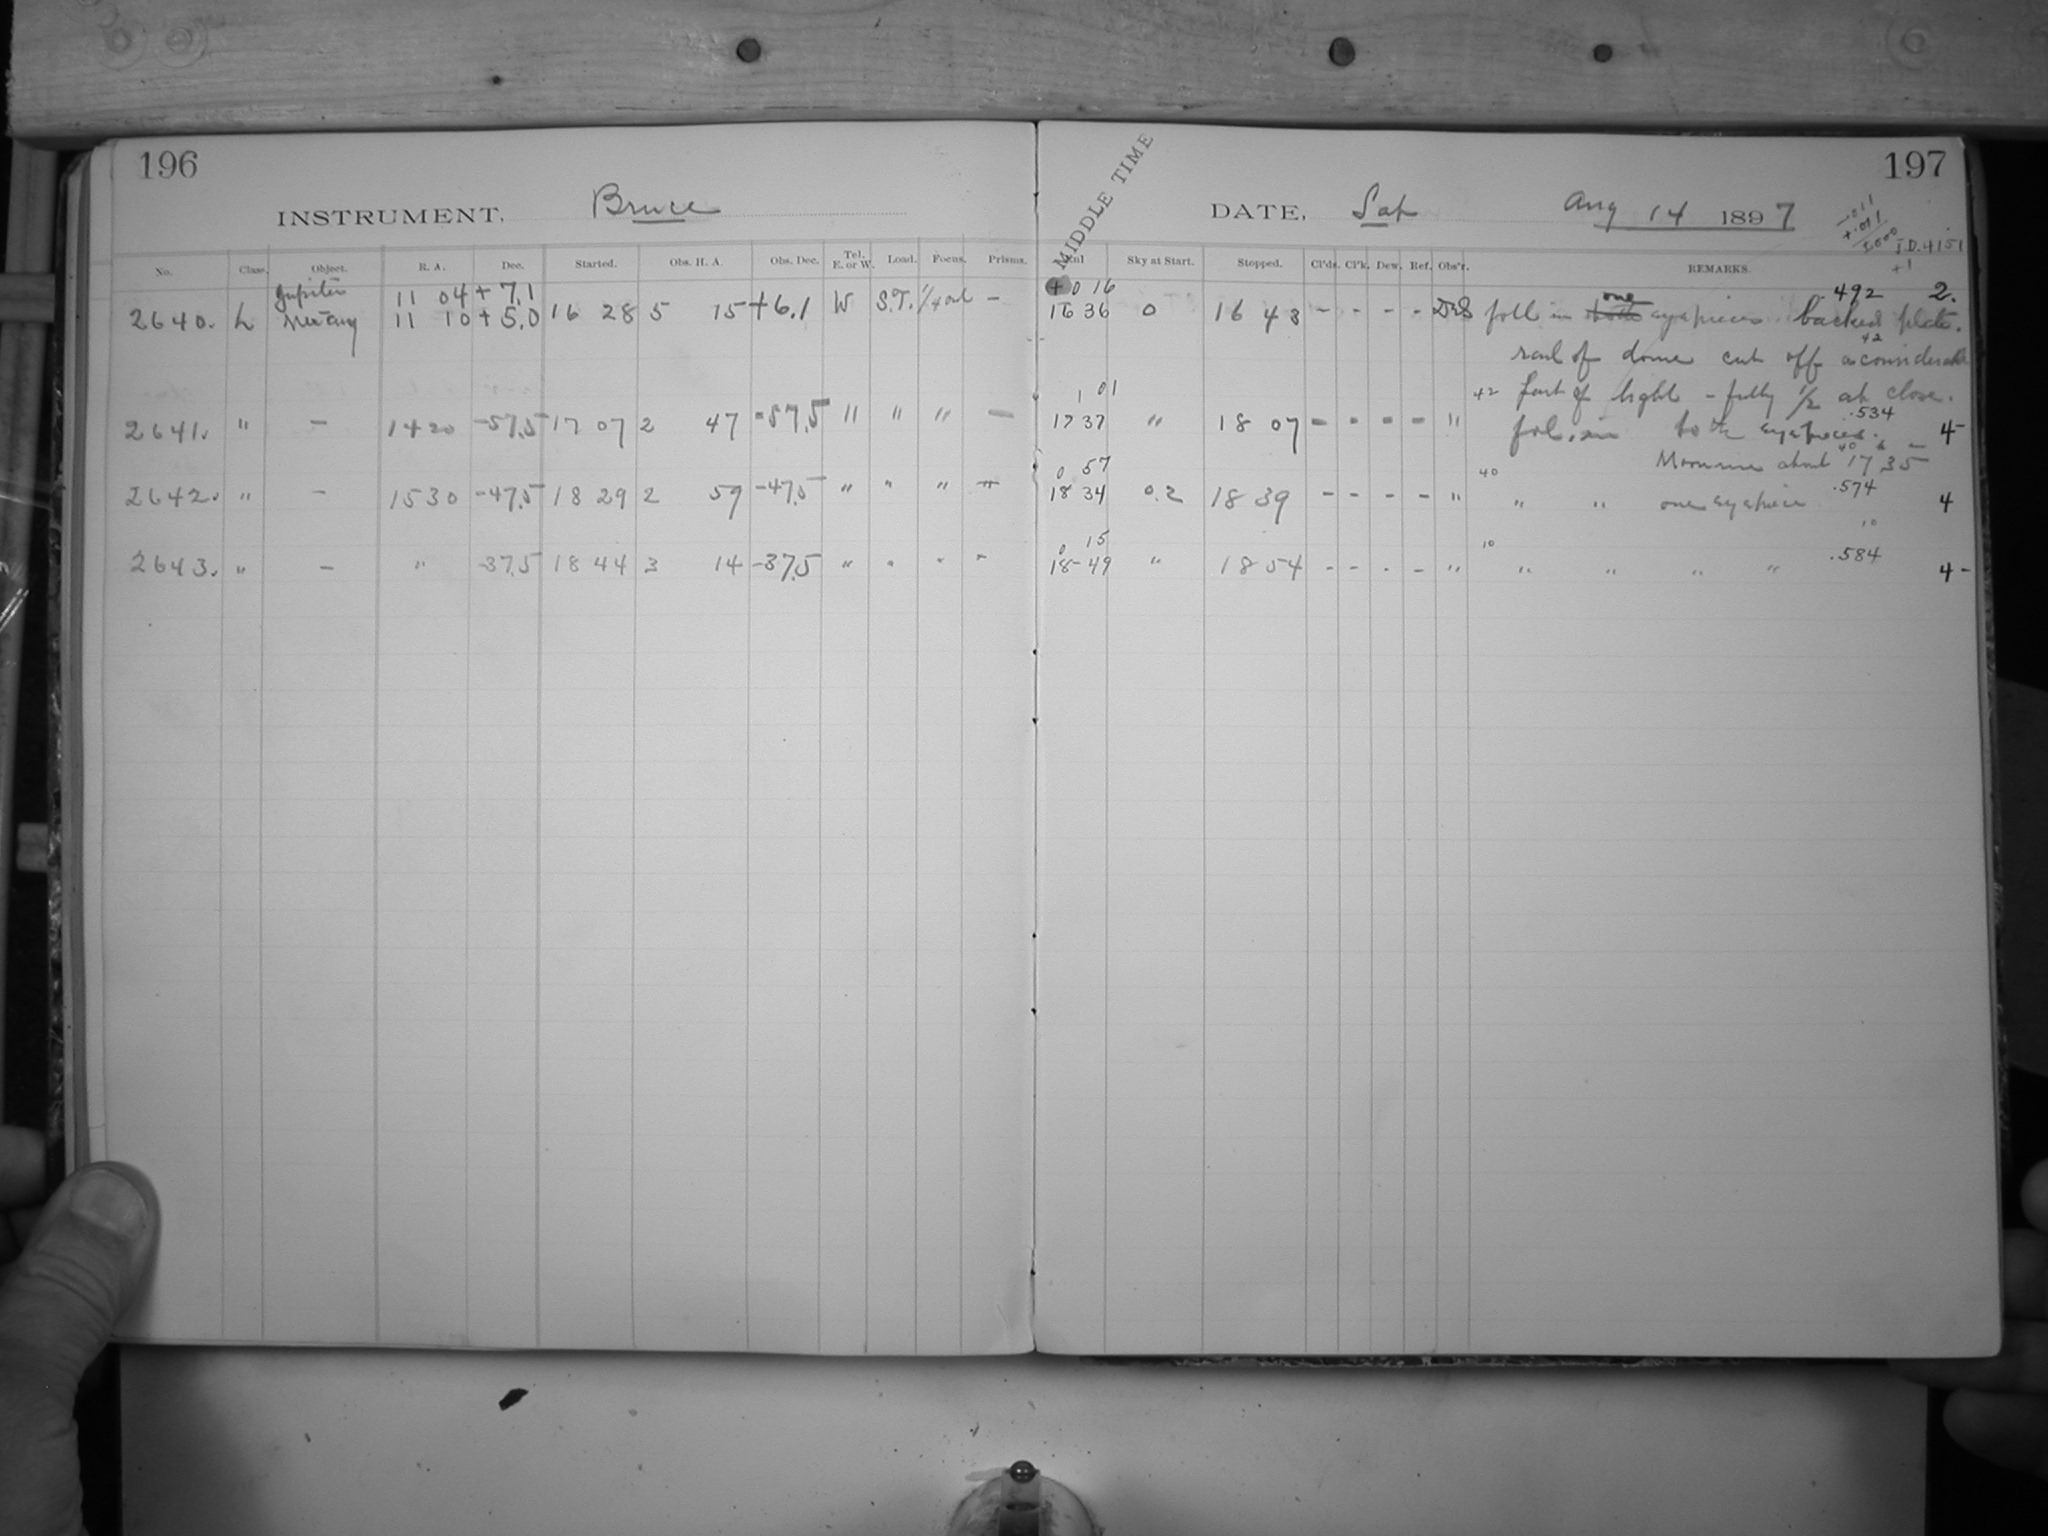 196
INSTRUMENT, Bruce
No. Class. Object. R. A. Dec. Started. Obs. H. A. Obs. Dec. Tel. E. or W. Load. Focus. Prisms.
Jupiter 11 04 + 7.1
2640. L Mercury 11 10 + 5.0 16 28 5 15 +6.1 W S.T. 1/4 out –
2641. " – 14 20 -57.5 17 07 2 47 -57.5 " " " –
2642. " – 15 30 -47.5 18 29 2 59 -47.5 " " " "
2643. " – " -37.5 18 44 3 14 -37.5 " " " "
MIDDLE TIME
197
DATE, Sat Aug 14 1897
J.D. 4151
+1
Sky at Start. Stopped. Cl'ds. Cl'k. Dew. Ref. Obs'r. REMARKS.
+ 0 16
16 36 0 16 43 – – – – foll in one eyepieces backed plate. .492 2.
rail of dome cut off a considerable
42
part of light – fully 1/2 at close.
1 01
17 37 " 18 07 – – – – " fol. in both eyepieces. .534 4-
Moonrise about 17 35
0 57
18 34 0.2 18 39 – – – – " 40 " " one eyepiece .574 4
0 15
18 49 " 18 54 – – – – " 10 " " " " .584 4-